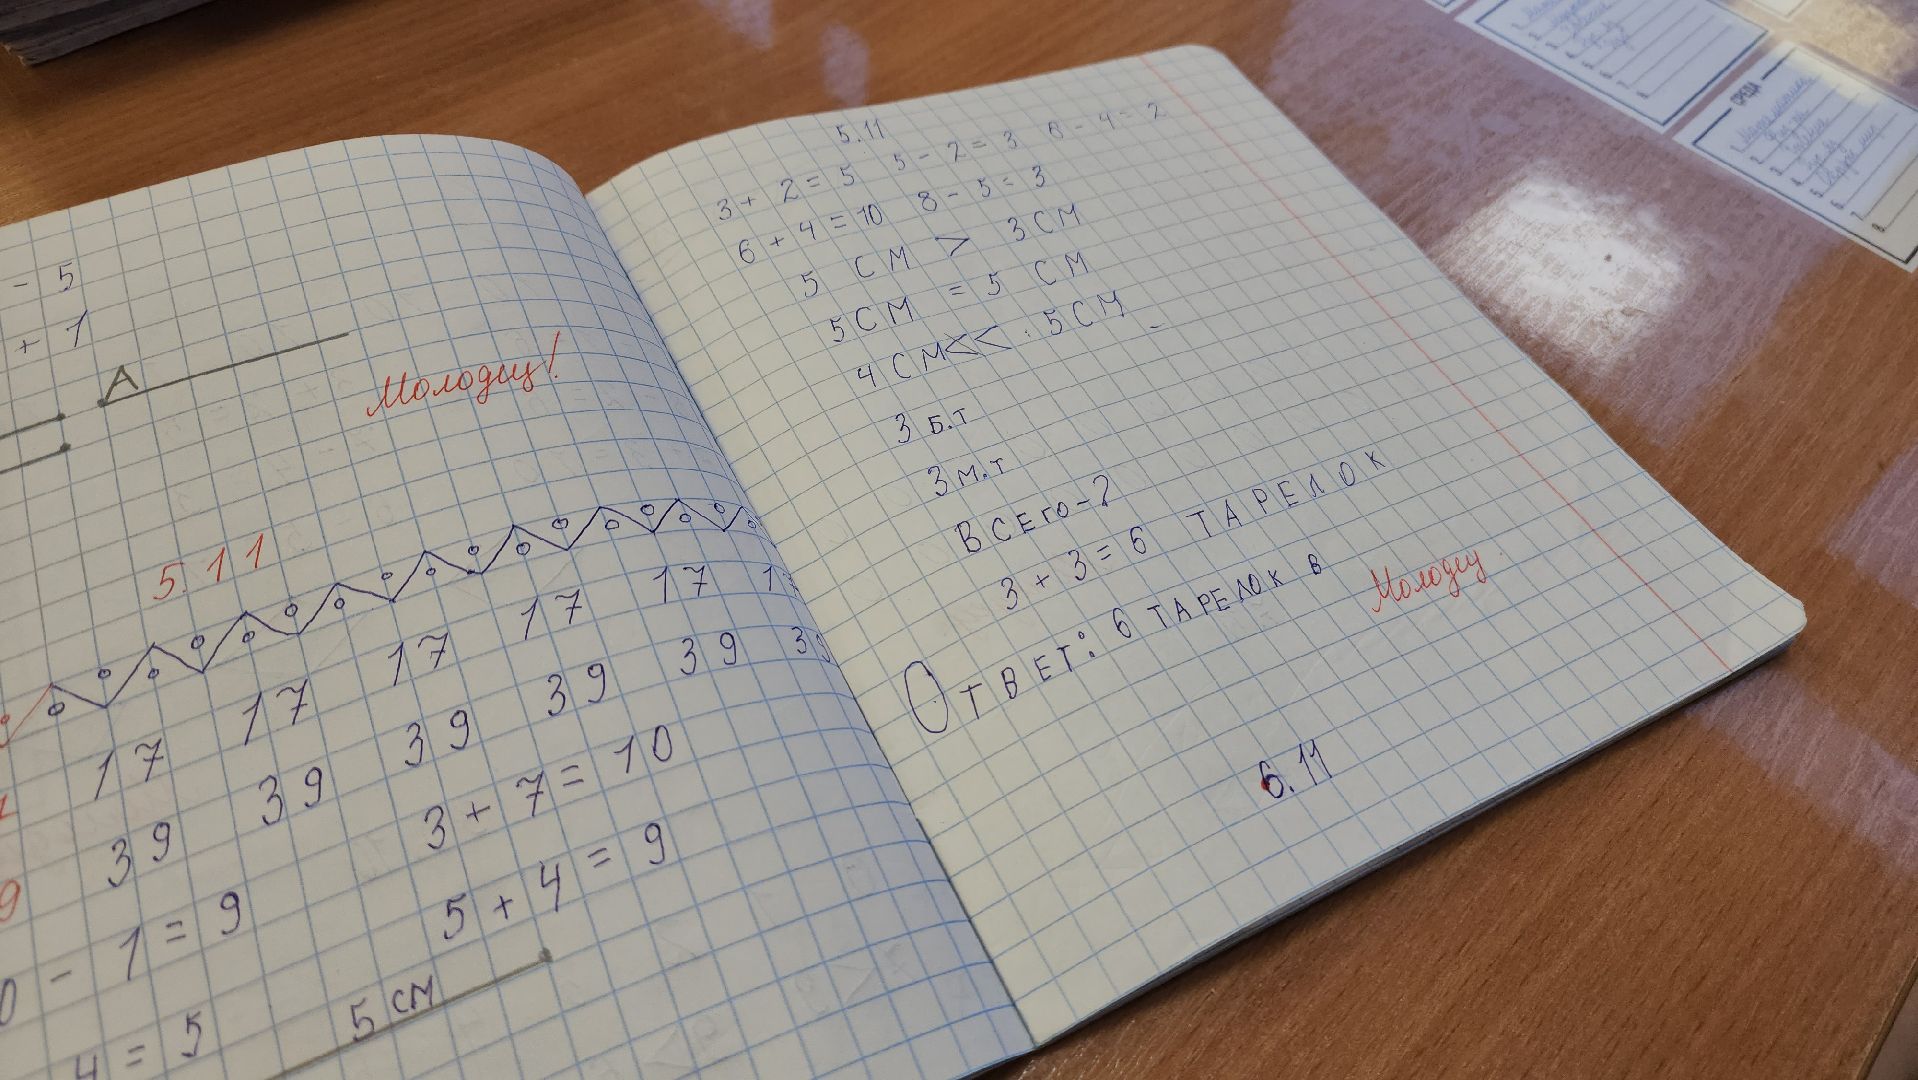 - 5
+ 1
А
Молодец!
5.11
17 17 17 17 17
39 39 39 39 39 39
3 + 7 = 10
- 1 = 9
5 + 4 = 9
4 = 5
5 см
5.11
3 + 2 = 5 5 - 2 = 3 6 - 4 = 2
6 + 4 = 10 8 - 5 = 3
5 СМ > 3 СМ
5 СМ = 5 СМ
4 СМ << 5 СМ
3 б.т
3 м.т
ВСЕГО-?
3 + 3 = 6 ТАРЕЛОК
ОТВЕТ: 6 ТАРЕЛОК В
Молодец
6.11
СРЕДА